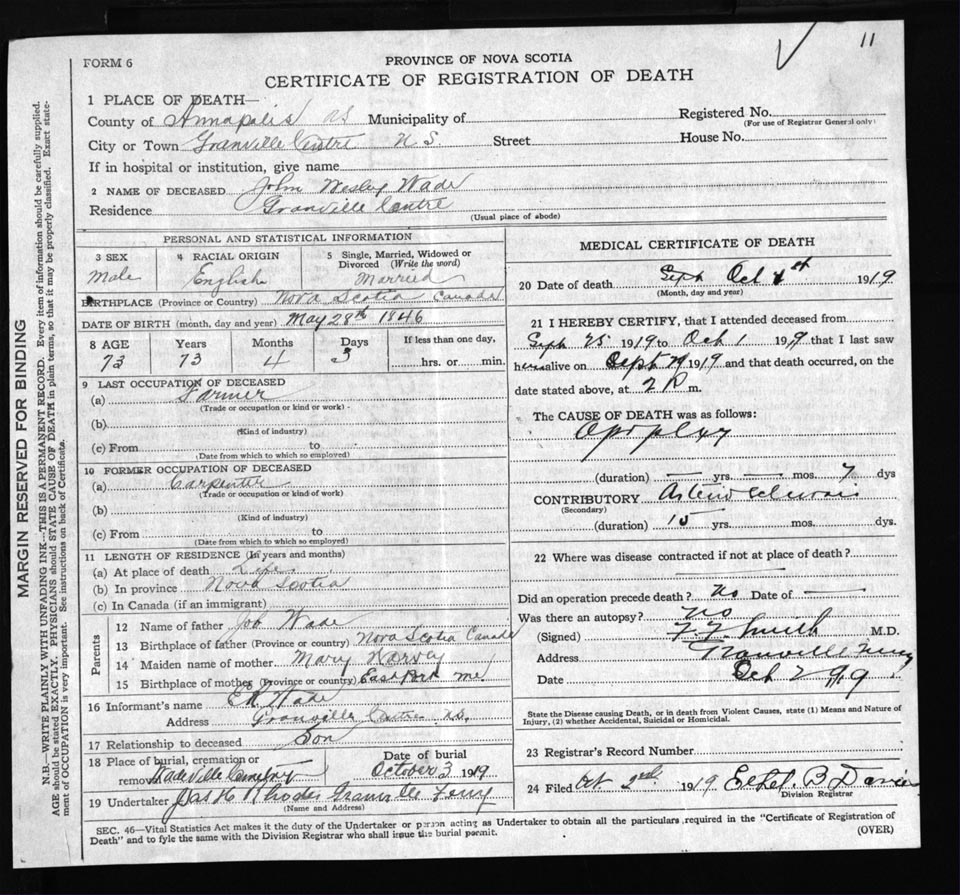 11
FORM 6
PROVINCE OF NOVA SCOTIA
CERTIFICATE OF REGISTRATION OF DEATH
1 PLACE OF DEATH—
County of Annapolis Municipality of
Registered No.
(For use of Registrar General only)
City or Town Granville Centre N.S. Street House No.
If in hospital or institution, give name
2 NAME OF DECEASED John Wesley Wade
Residence Granville Centre
(Usual place of abode)
PERSONAL AND STATISTICAL INFORMATION
3 SEX 4 RACIAL ORIGIN 5 Single, Married, Widowed or
Divorced (Write the word)
Male English Married
BIRTHPLACE (Province or Country) Nova Scotia Canada
DATE OF BIRTH (month, day and year) May 28th 1846
8 AGE Years Months Days If less than one day,
73 73 4 3 hrs. or min.
9 LAST OCCUPATION OF DECEASED
(a) Farmer
(Trade or occupation or kind or work)
(b)
(Kind of industry)
(c) From to
(Date from which to which so employed)
10 FORMER OCCUPATION OF DECEASED
(a) Carpenter
(Trade or occupation or kind of work)
(b)
(Kind of industry)
(c) From to
(Date from which to which so employed)
11 LENGTH OF RESIDENCE (In years and months)
(a) At place of death Life
(b) In province Nova Scotia
(c) In Canada (if an immigrant)
Parents
12 Name of father Job Wade
13 Birthplace of father (Province or country) Nova Scotia Canada
14 Maiden name of mother Mary
15 Birthplace of mother (Province or country) Eastport Me
16 Informant's name Wade
Address Granville Centre N.S.
17 Relationship to deceased Son
18 Place of burial, cremation or Date of burial
removal Wadeville Cemetery October 3 1919
19 Undertaker Jas H Rhodes Granville Ferry
(Name and Address)
MEDICAL CERTIFICATE OF DEATH
20 Date of death Sept Oct 1st 1919
(Month, day and year)
21 I HEREBY CERTIFY, that I attended deceased from
Sept 25 1919 to Oct 1 1919 that I last saw
alive on Sept 29 1919 and that death occurred, on the
date stated above, at 2 P m.
The CAUSE OF DEATH was as follows:
Apoplexy
(duration) yrs. mos. 7 dys
CONTRIBUTORY Arterio sclerosis
(Secondary)
(duration) 15 yrs. mos. dys.
22 Where was disease contracted if not at place of death?
Did an operation precede death? No Date of
Was there an autopsy? No
(Signed) Smith M.D.
Address Granville Ferry
Date Oct 2 1919
State the Disease causing Death, or in death from Violent Causes, state (1) Means and Nature of
Injury, (2) whether Accidental, Suicidal or Homicidal.
23 Registrar's Record Number
24 Filed Oct 2nd 1919 Ethel B
Division Registrar
SEC. 46—Vital Statistics Act makes it the duty of the Undertaker or person acting as Undertaker to obtain all the particulars required in the "Certificate of Registration of
Death" and to fyle the same with the Division Registrar who shall issue the burial permit.
(OVER)
MARGIN RESERVED FOR BINDING
N.B.—WRITE PLAINLY WITH UNFADING INK—THIS IS A PERMANENT RECORD. Every item of information should be carefully supplied.
AGE should be stated EXACTLY. PHYSICIANS should STATE CAUSE OF DEATH in plain terms, so that it may be properly classified. Exact state-
ment of OCCUPATION is very important. See instructions on back of Certificate.